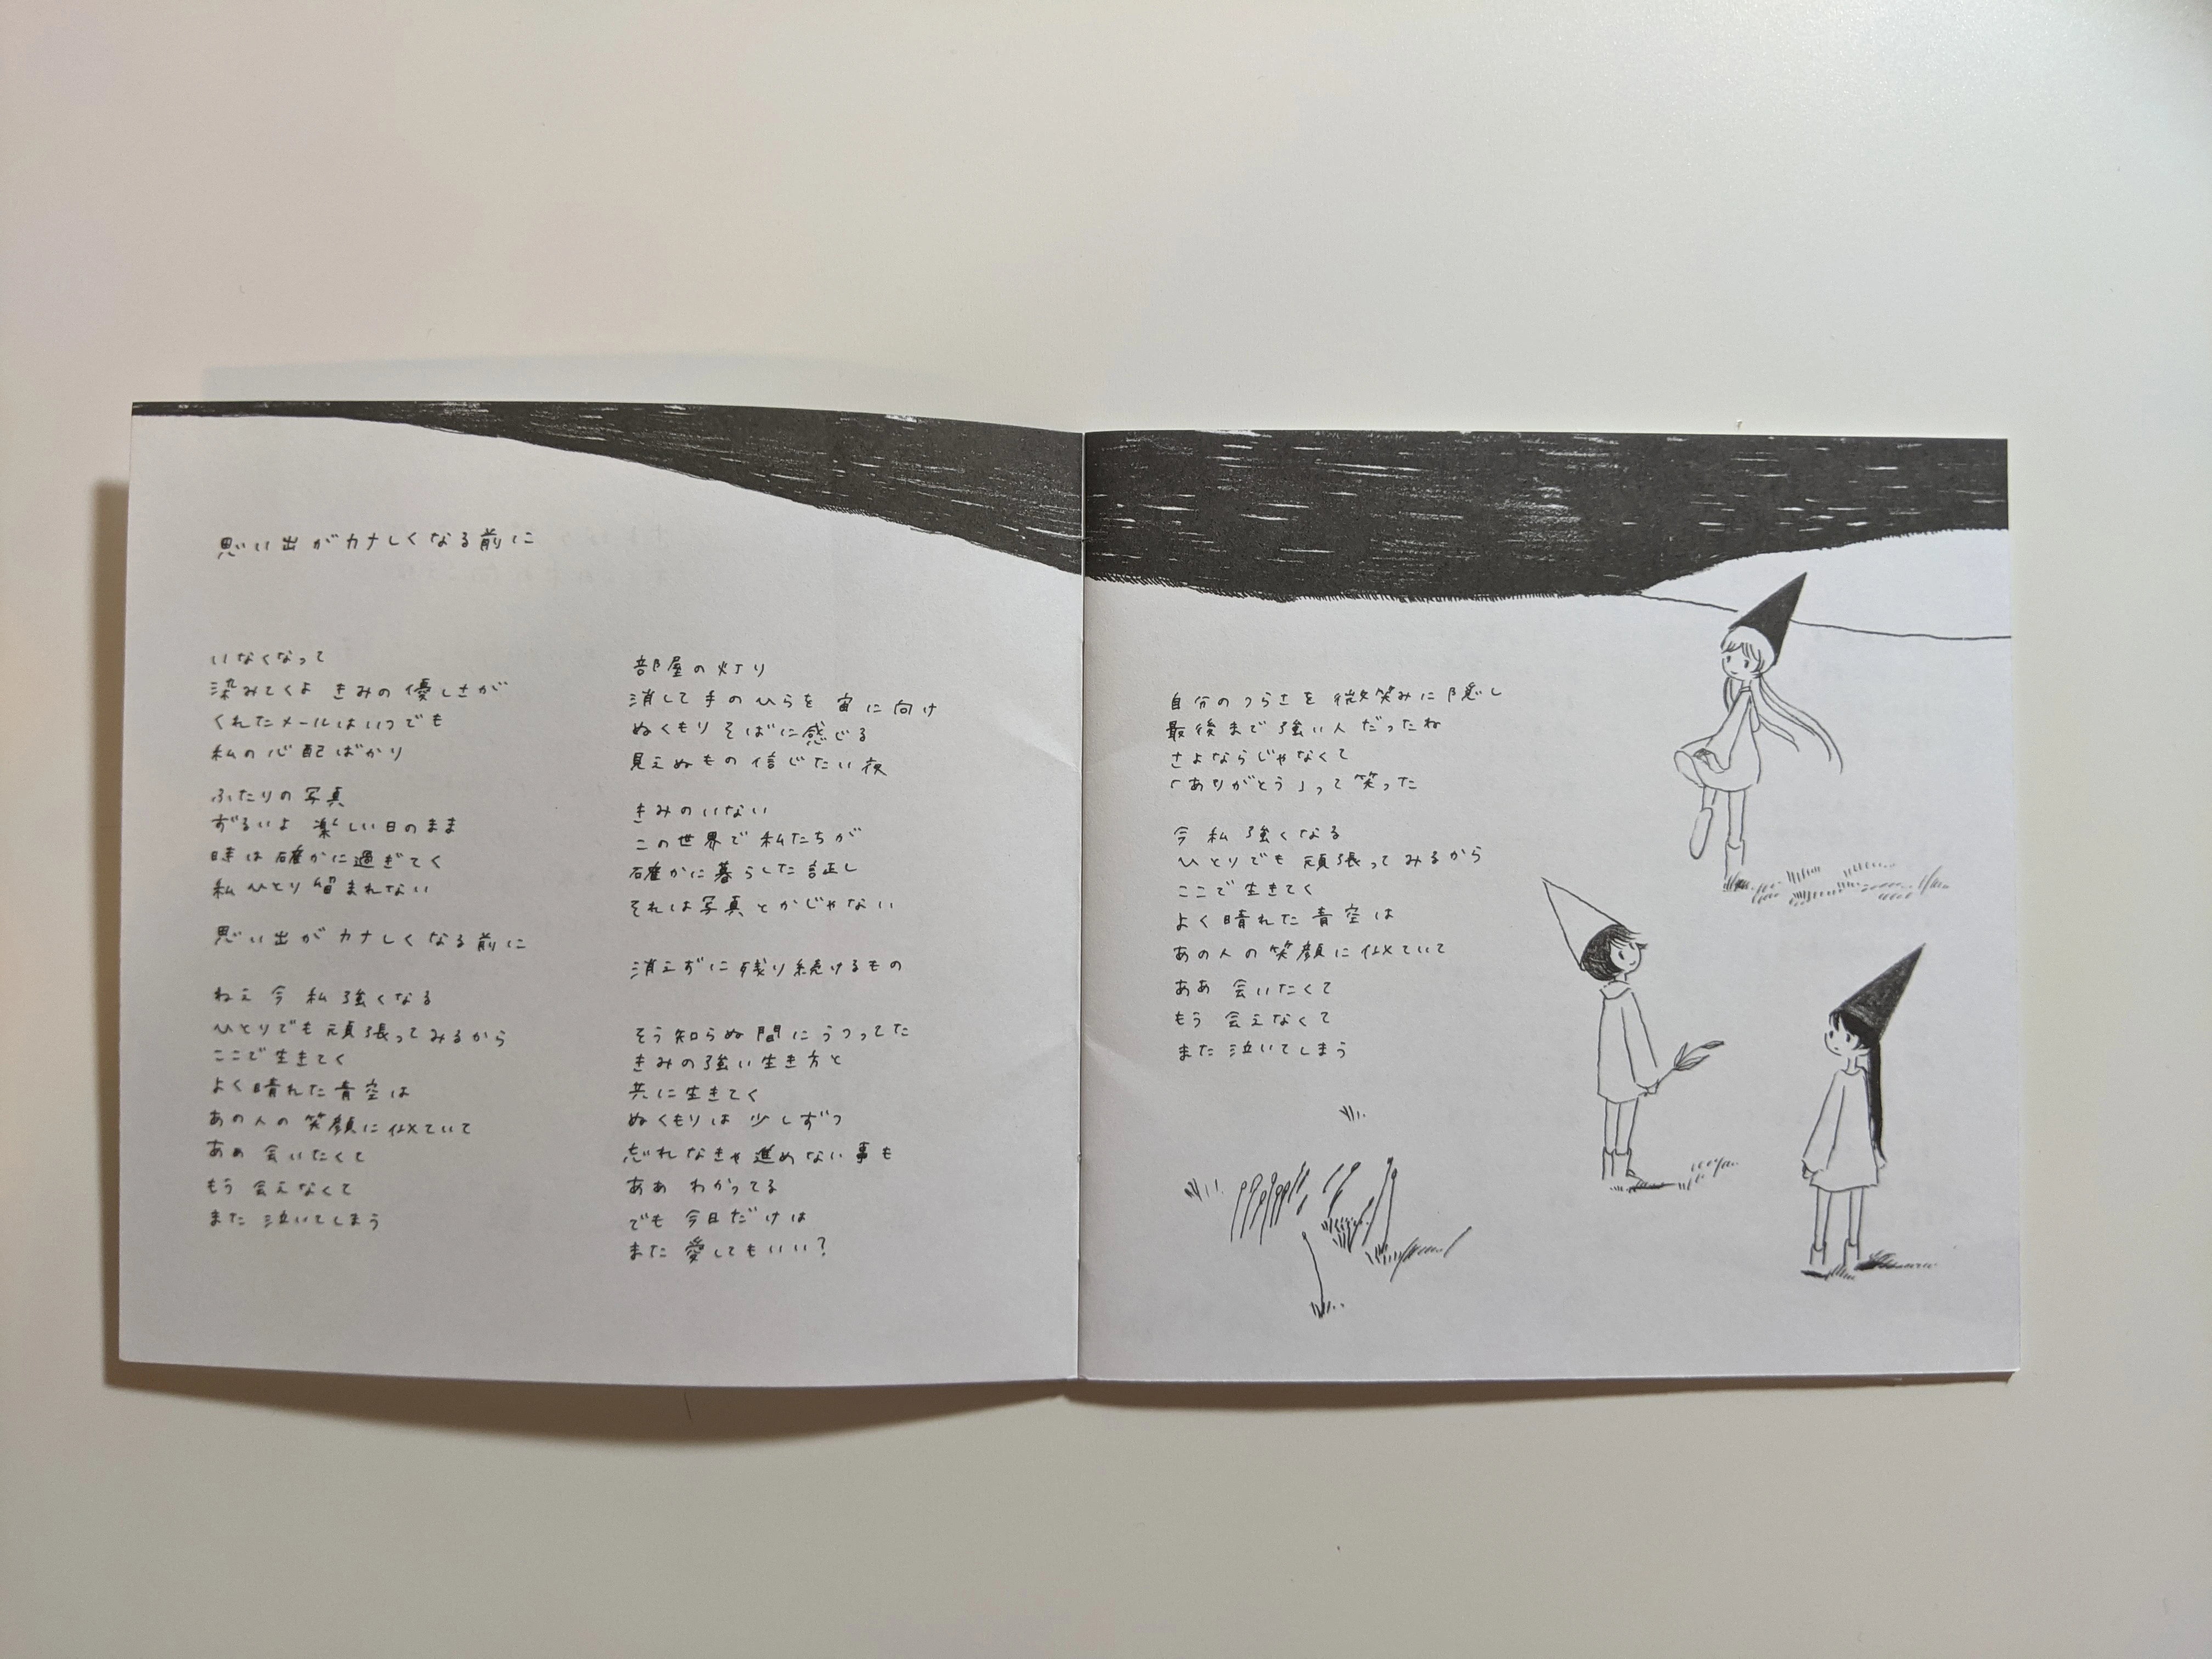 思い出がカナしくなる前に
いなくなって
染みてくよ きみの優しさが
くれたメールはいつでも
私の心配ばかり
ふたりの写真
ずるいよ 楽しい日のまま
時は確かに過ぎてく
私ひとり留まれない
思い出がカナしくなる前に
ねえ 今 私 強くなる
ひとりでも 頑張ってみるから
ここで生きてく
よく晴れた青空は
あの人の笑顔に似ていて
ああ 会いたくて
もう 会えなくて
また 泣いてしまう
部屋の灯り
消して手のひらを 宙に向け
ぬくもり そばに感じる
見えぬもの 信じたい夜
きみのいない
この世界で 私たちが
確かに暮らした証し
それは写真とかじゃない
消えずに残り続けるもの
そう知らぬ間に うつってた
きみの強い生き方と
共に生きてく
ぬくもりは 少しずつ
忘れなきゃ進めない事も
ああ わかってる
でも 今日だけは
また 愛してもいい?
自分のつらさを 微笑みに隠し
最後まで 強い人だったね
さよならじゃなくて
「ありがとう」って笑った
今 私 強くなる
ひとりでも 頑張ってみるから
ここで 生きてく
よく晴れた 青空は
あの人の笑顔に似ていて
ああ 会いたくて
もう 会えなくて
また 泣いてしまう